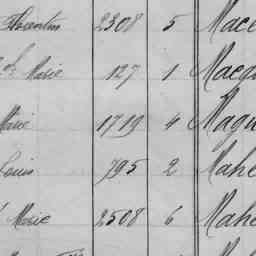 2308 5 Mace
Marie 127 1 Macq
Marie 1719 4 Magn
Louis 795 2 Mahe
Marie 2508 6 Mahe